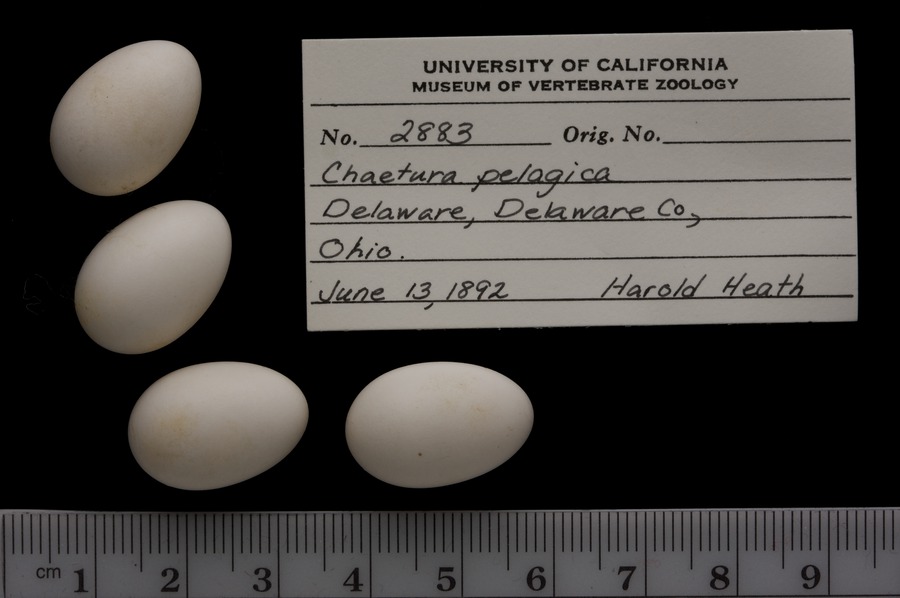 UNIVERSITY OF CALIFORNIA
MUSEUM OF VERTEBRATE ZOOLOGY
No. 2883 Orig. No.
Chaetura pelagica
Delaware, Delaware Co,
Ohio.
June 13, 1892 Harold Heath
cm 1 2 3 4 5 6 7 8 9